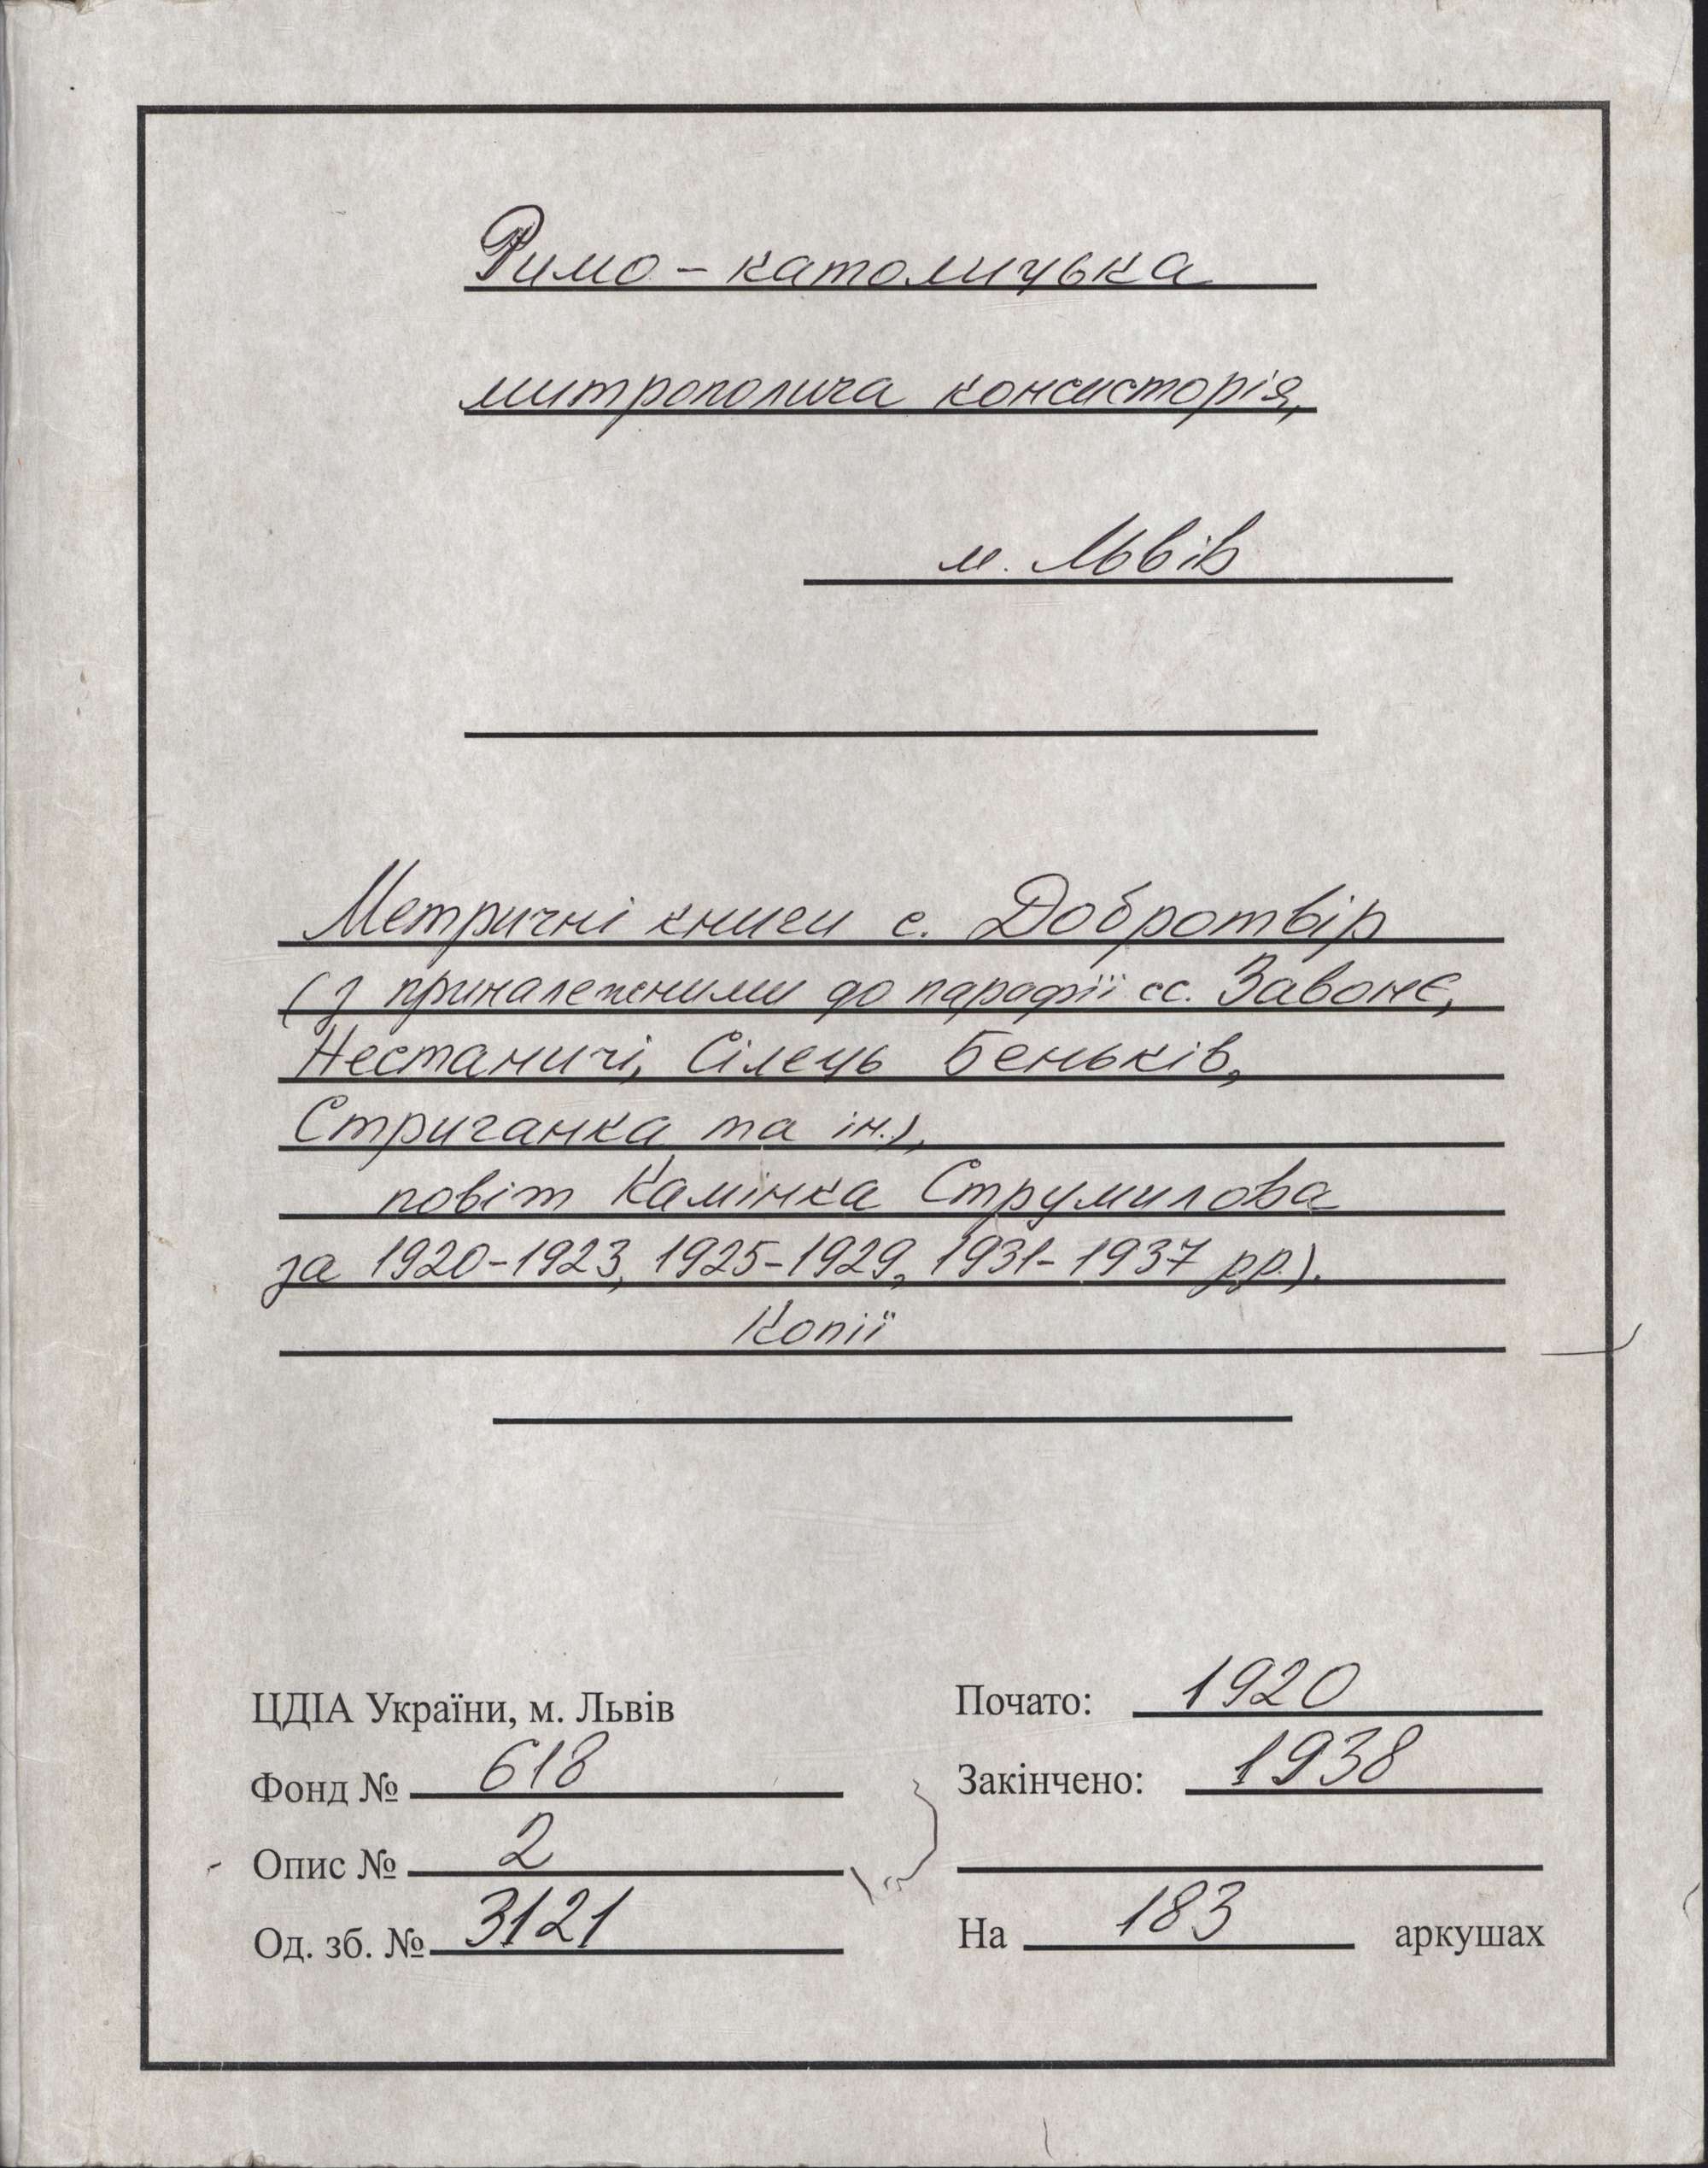 Римо-католицька
митрополича консисторія,
м. Львів
Метричні книги с. Добротвір
(з приналежними до парафії сс. Завонє,
Нестаничі, Сілець Беньків,
Стриганка та ін.),
повіт Камінка Струмилова
за 1920-1923, 1925-1929, 1931-1937 рр.).
Копії
ЦДІА України, м. Львів
Фонд № 618
Опис № 2
Од. зб. № 3121
Почато: 1920
Закінчено: 1938
На 183 аркушах